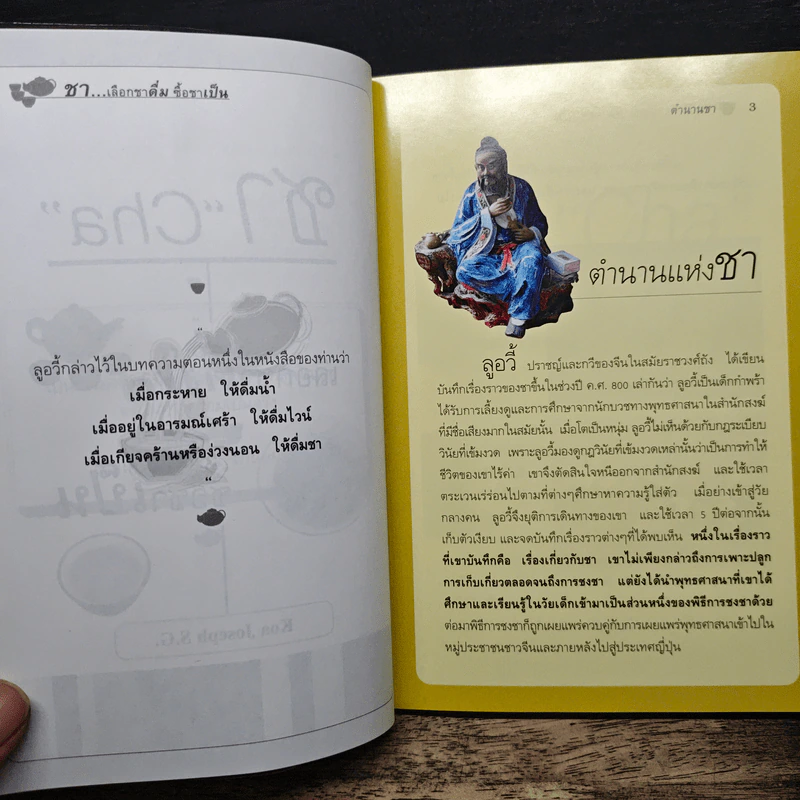 ชา...เลือกชาดื่ม ซื้อชาเป็น
“
ลูอวี้กล่าวไว้ในบทความตอนหนึ่งในหนังสือของท่านว่า
เมื่อกระหาย ให้ดื่มน้ำ
เมื่ออยู่ในอารมณ์เศร้า ให้ดื่มไวน์
เมื่อเกียจคร้านหรือง่วงนอน ให้ดื่มชา
“
ชา “Cha”
Kon Joseph S.G.
ตำนานชา 3
ตำนานแห่งชา
ลูอวี้ ปราชญ์และกวีของจีนในสมัยราชวงศ์ถัง ได้เขียน
บันทึกเรื่องราวของชาขึ้นในช่วงปี ค.ศ. 800 เล่ากันว่า ลูอวี้เป็นเด็กกำพร้า
ได้รับการเลี้ยงดูและการศึกษาจากนักบวชทางพุทธศาสนาในสำนักสงฆ์
ที่มีชื่อเสียงมากในสมัยนั้น เมื่อโตเป็นหนุ่ม ลูอวี้ไม่เห็นด้วยกับกฎระเบียบ
วินัยที่เข้มงวด เพราะลูอวี้มองดูกฎวินัยที่เข้มงวดเหล่านั้นว่าเป็นการทำให้
ชีวิตของเขาไร้ค่า เขาจึงตัดสินใจหนีออกจากสำนักสงฆ์ และใช้เวลา
ตระเวนเร่ร่อนไปตามที่ต่างๆศึกษาหาความรู้ใส่ตัว เมื่อย่างเข้าสู่วัย
กลางคน ลูอวี้จึงยุติการเดินทางของเขา และใช้เวลา 5 ปีต่อจากนั้น
เก็บตัวเงียบ และจดบันทึกเรื่องราวต่างๆที่ได้พบเห็น หนึ่งในเรื่องราว
ที่เขาบันทึกคือ เรื่องเกี่ยวกับชา เขาไม่เพียงกล่าวถึงการเพาะปลูก
การเก็บเกี่ยวตลอดจนถึงการชงชา แต่ยังได้นำพุทธศาสนาที่เขาได้
ศึกษาและเรียนรู้ในวัยเด็กเข้ามาเป็นส่วนหนึ่งของพิธีการชงชาด้วย
ต่อมาพิธีการชงชาก็ถูกเผยแพร่ควบคู่กับการเผยแพร่พุทธศาสนาเข้าไปใน
หมู่ประชาชนชาวจีนและภายหลังไปสู่ประเทศญี่ปุ่น